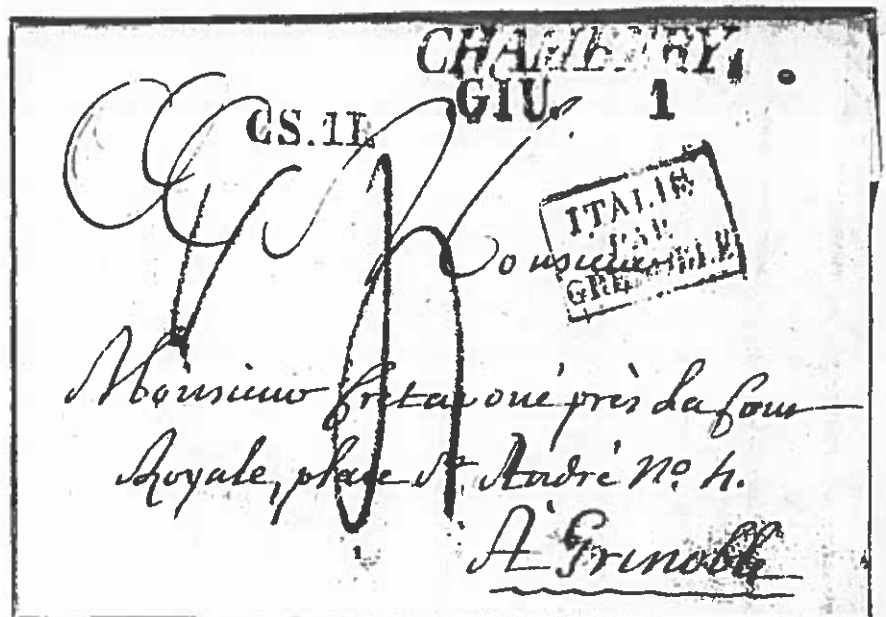 CHAMBERY.
GIU. 1
CS. 1L
ITALIE
PAR
GRENOBLE
Monsieur
Monsieur avoué près la Cour
Royale, place St André No. 4.
A Grenoble